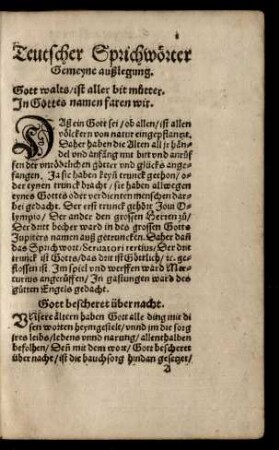 Teutscher Sprichwörter
Gemeyne außlegung.
Gott walts / ist aller bit mütter.
In Gottes namen faren wir.
Daß ein Gott sei / ob allen / ist allen
völckern von natur eingepflantzt.
Daher haben die Alten all jr händ=
del vnd anfäng mit bitt vnd anrüf=
fen der vnödtlichen götter vnd glücks ange=
fangen. Ja sie haben keyn trunck gethon / o=
der eynen trunck bracht / sie haben allwegen
eynes Gottes oder verdienten menschen dar=
bei gedacht. Der erst trunck gehört Joui O=
lympio / Der ander den grossen Herren zů /
Der dritt becher ward in des grossen Gotts
Jupiters namen auß getruncken. Daher dañ
das Sprichwort / Seruatori tertius / Der drit
trunck ist Gottes / das drit ist Göttlich / ec. ge=
flossen ist. Im spiel vnd werffen ward Mer=
curius angerüffen / In gastungen ward des
gütten Engels gedacht.
Gott bescheret über nacht.
Vnsere ältern haben Gott alle ding mit di
sen worten heymgestelt / vnnd jm die sorg
jres leibs / lebens vnnd narung / allenthalben
befolhen / Deñ mit dem wort / Gott bescheret
über nacht / ist die bauchsorg hindan gesetzt /